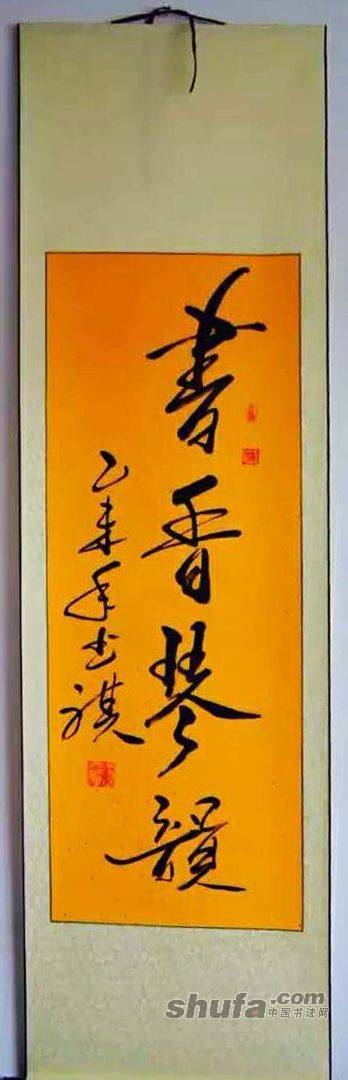 書香琴韻
乙未年士祺
shufa.com
中国书法网